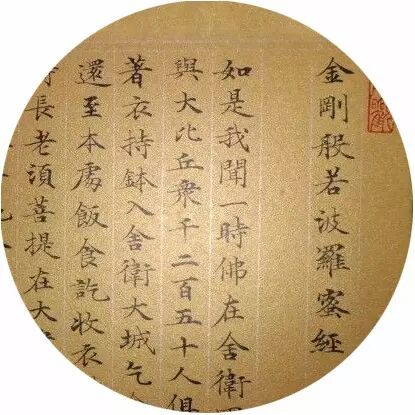 金剛般若波羅蜜經
如是我聞一時佛在舍衛
與大比丘衆千二百五十人俱
著衣持鉢入舍衛大城乞
還至本處飯食訖收衣
時長老須菩提在大